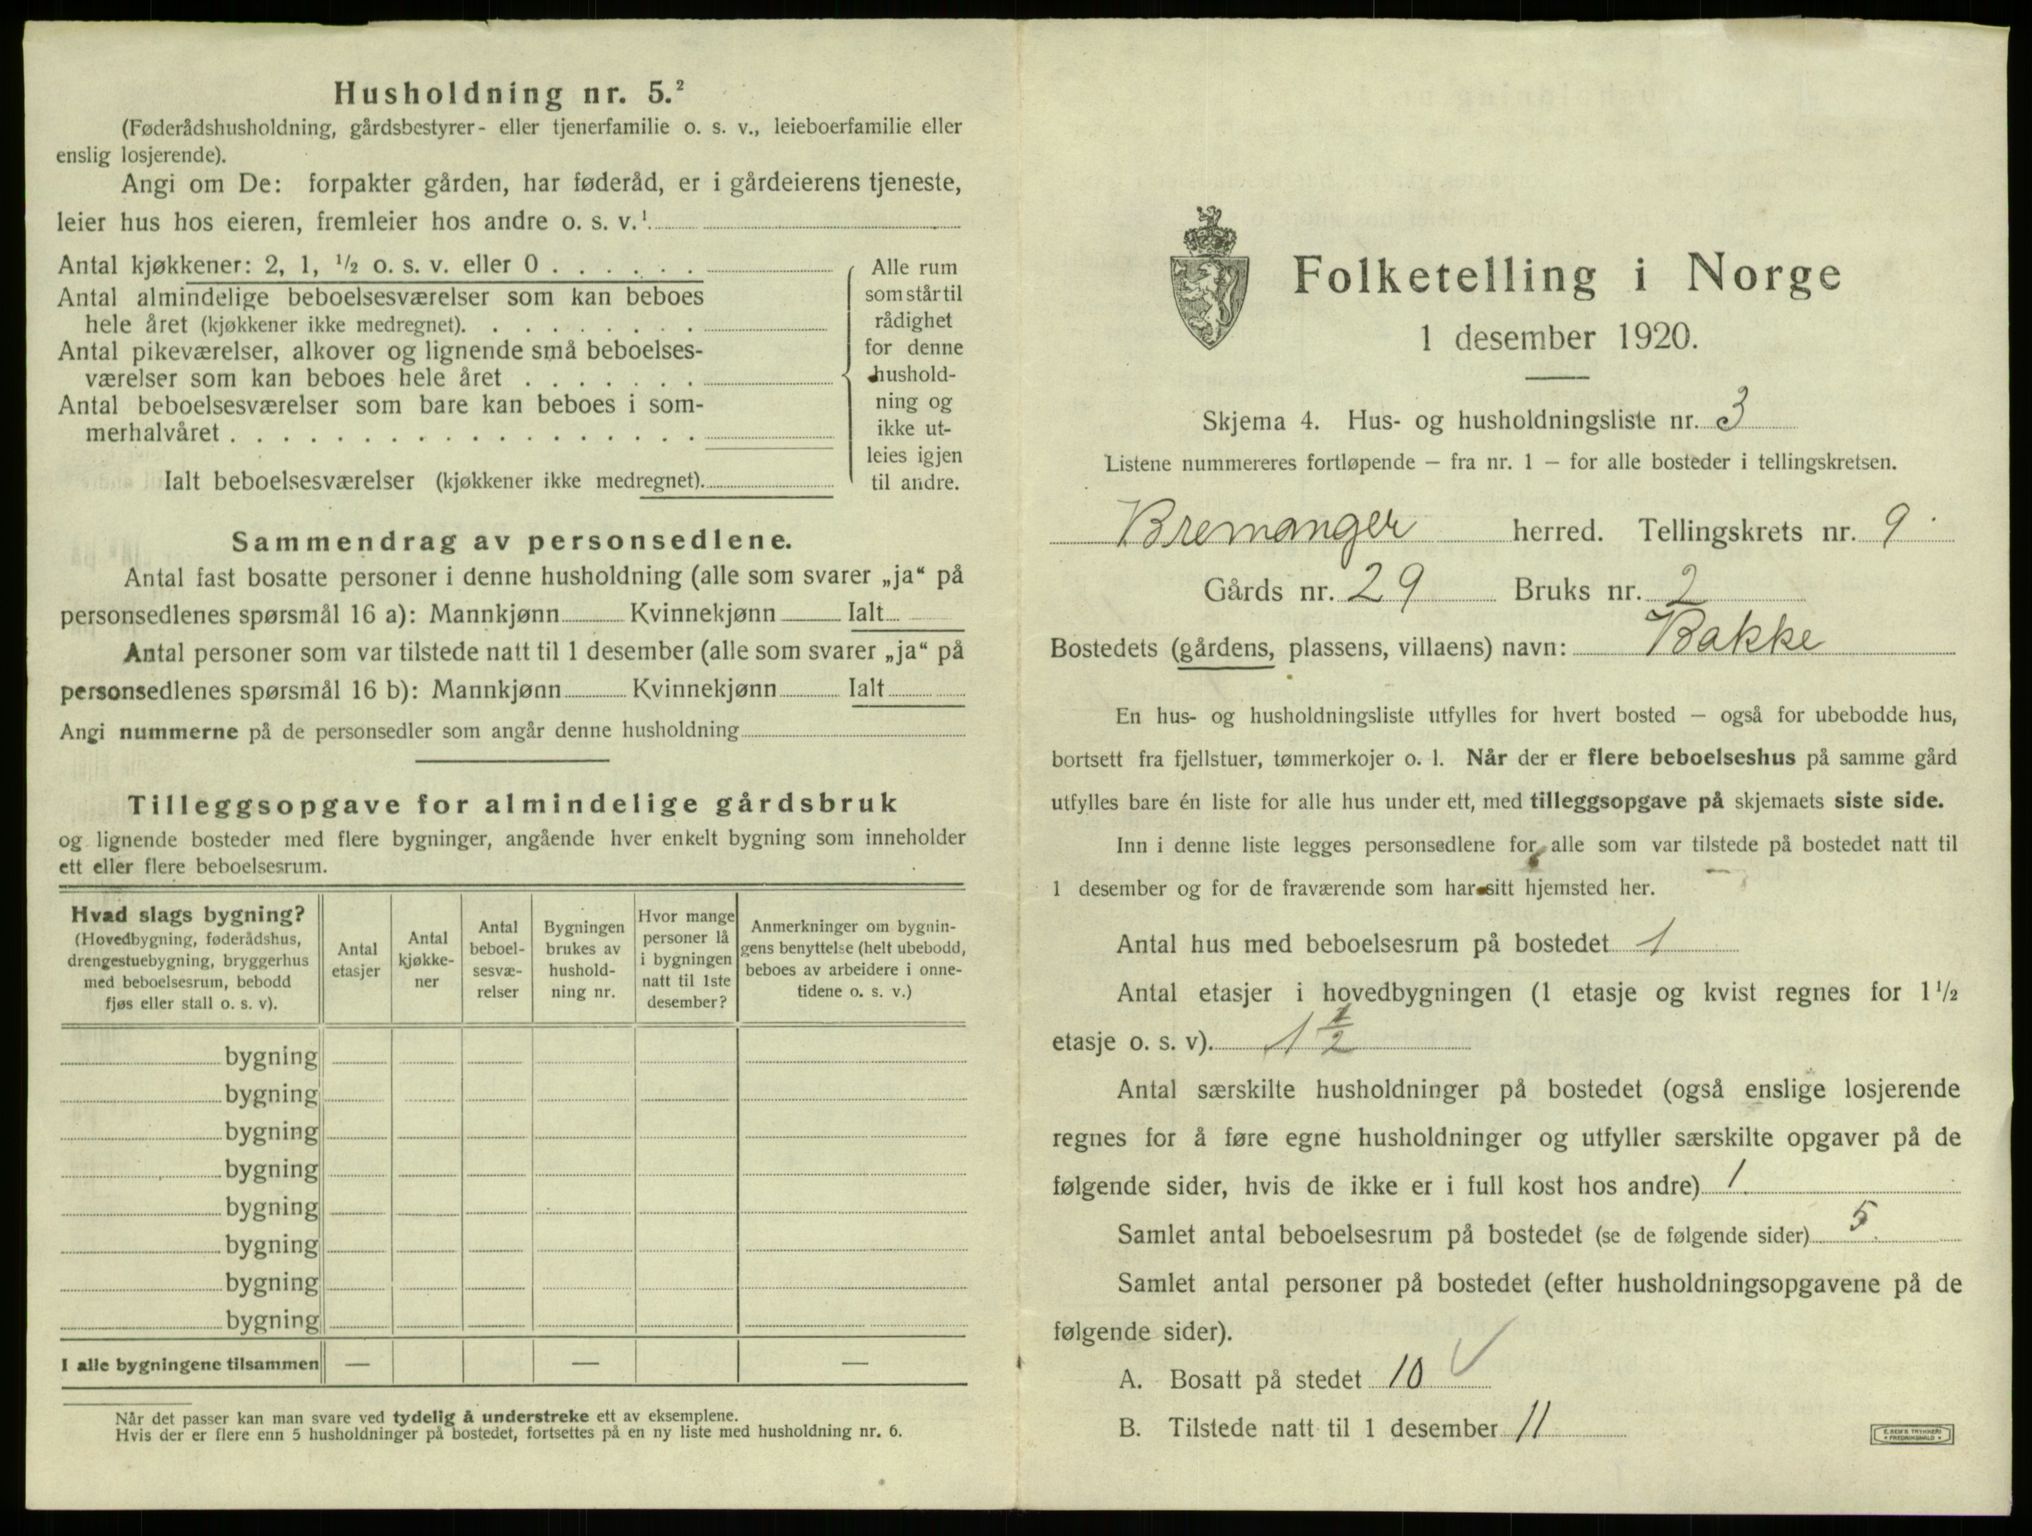 Husholdning nr. 5.²
(Føderådshusholdning, gårdsbestyrer- eller tjenerfamilie o. s. v., leieboerfamilie eller
enslig losjerende).
Angi om De: forpakter gården, har føderåd, er i gårdeierens tjeneste,
leier hus hos eieren, fremleier hos andre o. s. v.¹
Antal kjøkkener: 2, 1, ¹/₂ o. s. v. eller 0 . . . . . .
Antal almindelige beboelsesværelser som kan beboes
hele året (kjøkkener ikke medregnet). . . . . . . . .
Antal pikeværelser, alkover og lignende små beboelses-
værelser som kan beboes hele året . . . . . . .
Antal beboelsesværelser som bare kan beboes i som-
merhalvåret . . . . . . . . . . . . . . . . . .
Ialt beboelsesværelser (kjøkkener ikke medregnet).
Alle rum
som står til
rådighet
for denne
hushold-
ning og
ikke ut-
leies igjen
til andre.
Sammendrag av personsedlene.
Antal fast bosatte personer i denne husholdning (alle som svarer „ja“ på
personsedlenes spørsmål 16 a): Mannkjønn Kvinnekjønn Ialt
Antal personer som var tilstede natt til 1 desember (alle som svarer „ja“ på
personsedlenes spørsmål 16 b): Mannkjønn Kvinnekjønn Ialt
Angi nummerne på de personsedler som angår denne husholdning
Tilleggsopgave for almindelige gårdsbruk
og lignende bosteder med flere bygninger, angående hver enkelt bygning som inneholder
ett eller flere beboelsesrum.
Hvad slags bygning?
(Hovedbygning, føderådshus,
drengestuebygning, bryggerhus
med beboelsesrum, bebodd
fjøs eller stall o. s. v).
Antal
etasjer
Antal
kjøkke-
ner
Antal
beboel-
sesvæ-
relser
Bygningen
brukes av
hushold-
ning nr.
Hvor mange
personer lå
i bygningen
natt til 1ste
desember?
Anmerkninger om bygnin-
gens benyttelse (helt ubebodd,
beboes av arbeidere i onne-
tidene o. s. v.)
bygning
bygning
bygning
bygning
bygning
bygning
bygning
bygning
I alle bygningene tilsammen — — —
Når det passer kan man svare ved tydelig å understreke ett av eksemplene.
Hvis der er flere enn 5 husholdninger på bostedet, fortsettes på en ny liste med husholdning nr. 6.
Folketelling i Norge
1 desember 1920.
Skjema 4. Hus- og husholdningsliste nr. 3
Listene nummereres fortløpende – fra nr. 1 – for alle bosteder i tellingskretsen.
Bremanger herred. Tellingskrets nr. 9
Gårds nr. 29 Bruks nr. 2
Bostedets (gårdens, plassens, villaens) navn: Bakke
En hus- og husholdningsliste utfylles for hvert bosted – også for ubebodde hus,
bortsett fra fjellstuer, tømmerkojer o. l. Når der er flere beboelseshus på samme gård
utfylles bare én liste for alle hus under ett, med tilleggsopgave på skjemaets siste side.
Inn i denne liste legges personsedlene for alle som var tilstede på bostedet natt til
1 desember og for de fraværende som har sitt hjemsted her.
Antal hus med beboelsesrum på bostedet 1
Antal etasjer i hovedbygningen (1 etasje og kvist regnes for 1¹/₂
etasje o. s. v). 1 1/2
Antal særskilte husholdninger på bostedet (også enslige losjerende
regnes for å føre egne husholdninger og utfyller særskilte opgaver på de
følgende sider, hvis de ikke er i full kost hos andre) 1.
Samlet antal beboelsesrum på bostedet (se de følgende sider) 5.
Samlet antal personer på bostedet (efter husholdningsopgavene på de
følgende sider).
A. Bosatt på stedet 10 ✓
B. Tilstede natt til 1 desember 11
E. SEM'S TRYKKERI
FREDRIKSHALD